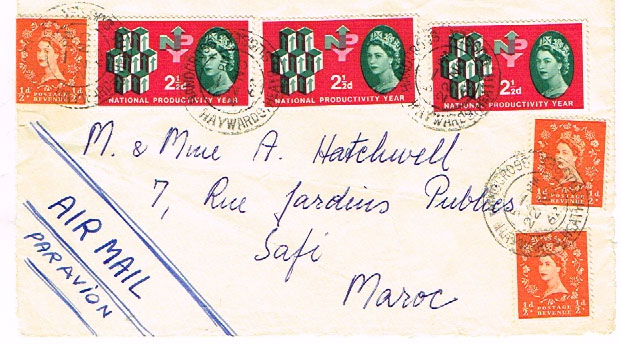 ½d. POSTAGE REVENUE ½d.
NPY 2½d NATIONAL PRODUCTIVITY YEAR
NPY 2½d NATIONAL PRODUCTIVITY YEAR
NPY 2½d NATIONAL PRODUCTIVITY YEAR
HAYWARDS
M. & Mme A. Hatchwell
7, Rue Jardins Publics
Safi
Maroc
AIR MAIL
PAR AVION
½d. POSTAGE REVENUE ½d.
½d. POSTAGE REVENUE ½d.